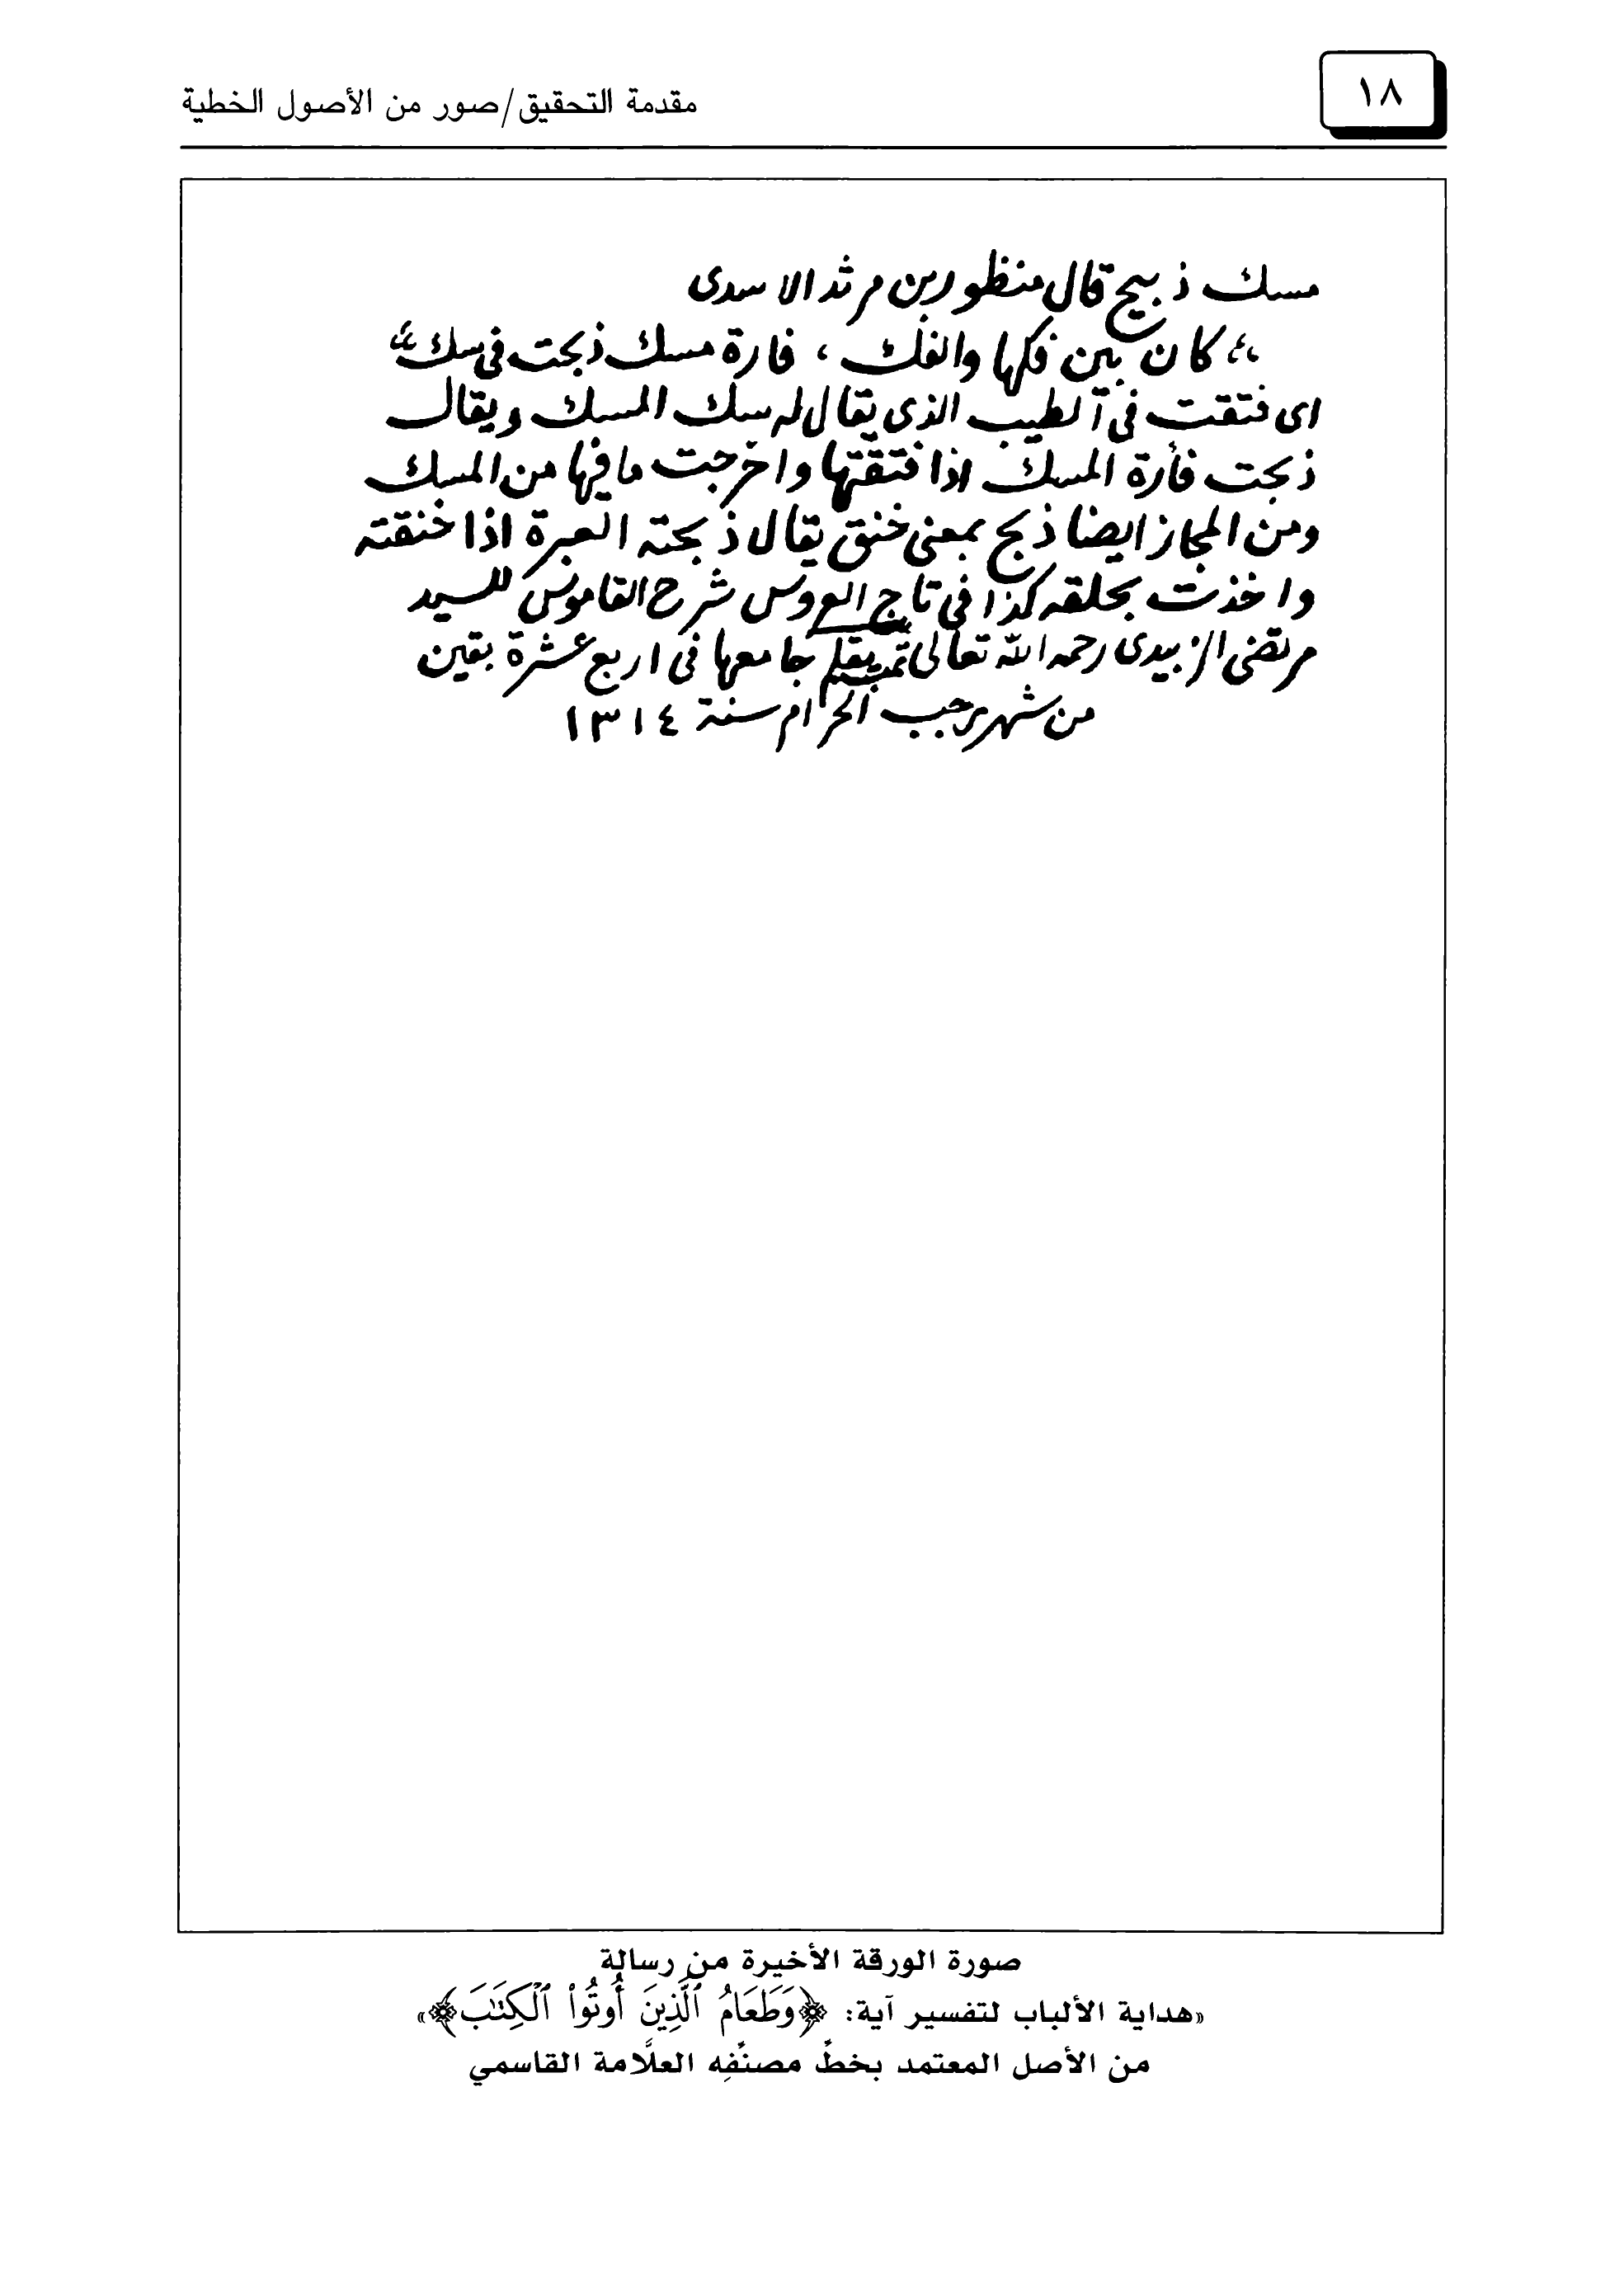 ١٨
مقدمة التحقيق/صور من الأصول الخطية
مسك ذبيح قال منظور بن مرثد الاسدى
كان بين فكها والفك ، فارة مسك ذبحت فى سك
اى فتقت فى الطيب الذى يقال له سك المسك ويقال
ذبحت فأرة المسك اذا فتقتها واخرجت ما فيها من المسك
ومن المجاز ايضا ذبح بمعنى خنق يقال ذبحته العبرة اذا خنقته
واخذت بحلقه كذا فى تاج العروس شرح القاموس للسيد
مرتضى الزبيدى رحمه الله تعالى تمت بقلم جامعها فى اربع عشرة بقين
من شهر رجب الحرام سنة ١٣١٤
صورة الورقة الأخيرة من رسالة
«هداية الألباب لتفسير آية: ﴿وَطَعَامُ ٱلَّذِينَ أُوتُوا۟ ٱلْكِتَـٰبَ﴾»
من الأصل المعتمد بخطِّ مصنِّفِه العلَّامة القاسمي